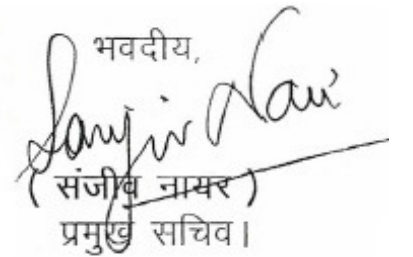 भवदीय,
Sanjiv Nair
( संजीव नायर )
प्रमुख सचिव।